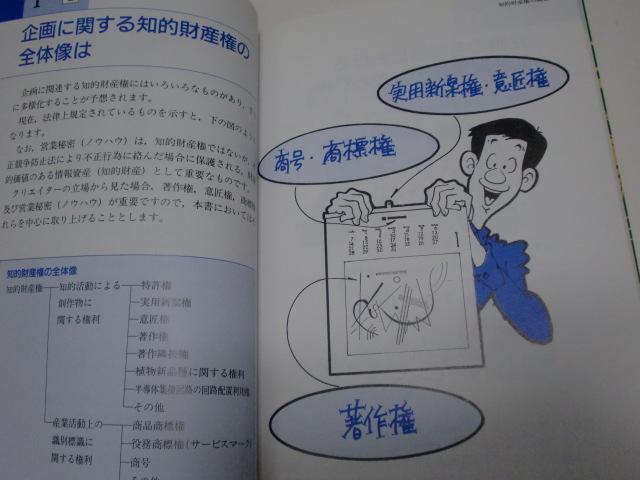 1
企画に関する知的財産権の
全体像は
企画に関連する知的財産権にはいろいろなものがあり、
に多様化することが予想されます。
現在，法律上規定されているものを示すと，下の図のように
なります。
なお，営業秘密（ノウハウ）は，知的財産権ではないが，
正競争防止法により不正行為に絡んだ場合に保護される，
的価値のある情報資産（知的財産）として重要なものです。
クリエイターの立場から見た場合，著作権，意匠権，商標
及び営業秘密（ノウハウ）が重要ですので，本書においては
れらを中心に取り上げることとします。
知的財産権の全体像
知的財産権 知的活動による 特許権
創作物に 実用新案権
関する権利 意匠権
著作権
著作隣接権
植物新品種に関する権利
半導体集積回路の回路配置利用権
その他
産業活動上の 商品商標権
識別標識に 役務商標権（サービスマーク）
関する権利 商号
その他
実用新案権・意匠権
商号・商標権
著作権